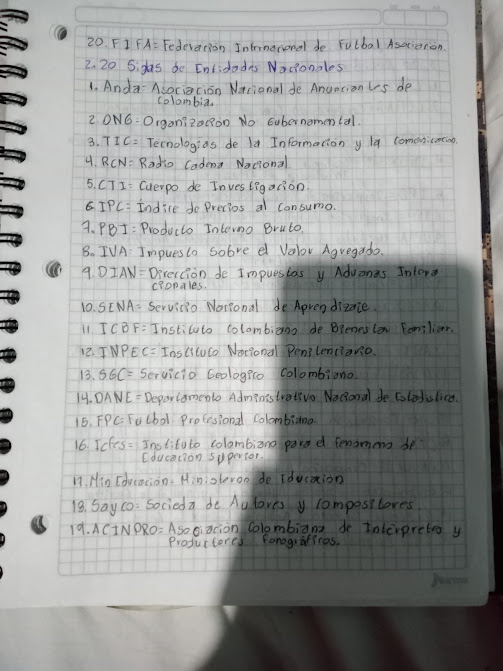 20. FIFA= Federación Intrnacional de Futbol Asociación.
2. 20 Sigas de Entidades Nacionales
1. Anda= Asociación Nacional de Anunciantes de
Colombia.
2. ONG= Organización No Gubernamental.
3. TIC= Tecnologias de la Informacion y la Comunicacion.
4. RCN= Radio Cadena Nacional.
5. CTI= Cuerpo de Investigación.
6. IPC= Indice de Precios al Consumo.
7. PBI= Producto Interno Bruto.
8. IVA= Impuesto Sobre el Valor Agregado.
9. DIAN= Dirección de Impuestos y Aduanas Interna
cionales.
10. SENA= Servicio Nacional de Aprendizaje.
11. ICBF= Instituto Colombiano de Bienestar Familiar.
12. INPEC= Instituto Nacional Penitenciario.
13. SGC= Servicio Geologico Colombiano.
14. DANE= Departamento Administrativo Nacional de Estadistica.
15. FPC= Futbol Profesional Colombiano.
16. Icfes= Instituto Colombiano para el de
Educación Superior.
17. Min Educación= de Educacion
18. Sayco= Socieda de Autores y Compositores.
19. ACINPRO= Asociación Colombiana de Interpretes y
Productores Fonográficos.